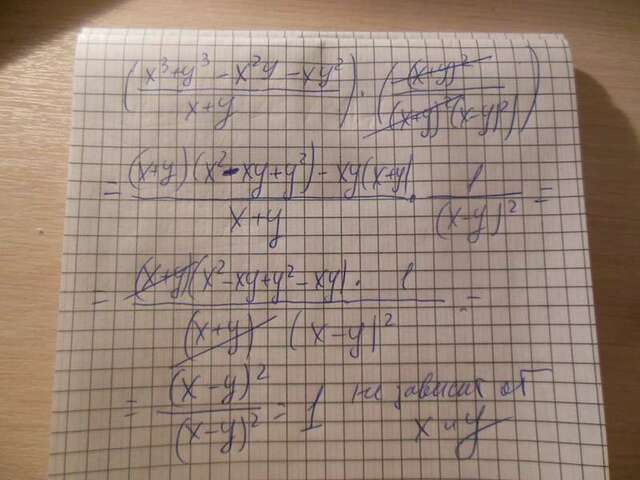 ((x³+y³-x²y-xy²)/(x+y)) · ((x+y)²/((x+y)²(x-y)²))
= ((x+y)(x²-xy+y²)-xy(x+y))/(x+y) · 1/(x-y)² =
= ((x+y)(x²-xy+y²-xy) · 1)/((x+y) (x-y)²) =
= (x-y)²/(x-y)² = 1 не зависит от
x и y